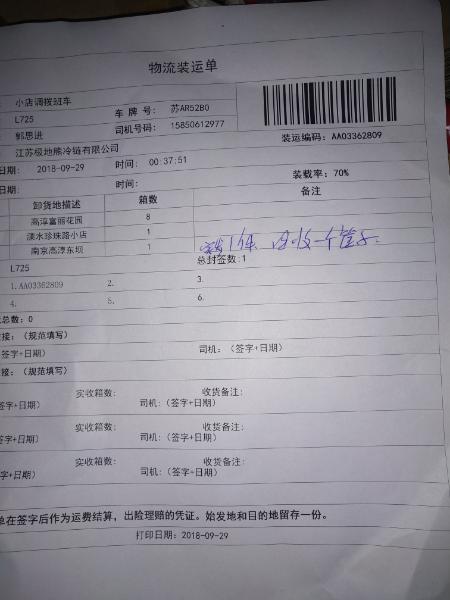 物流装运单
小店调拨班车
L725 车 牌 号: 苏AR52B0
郭思进 司机号码: 15850612977
装运编码: AA03362809
江苏极地熊冷链有限公司
日期: 2018-09-29 时间: 00:37:51
日期: 时间: 装载率: 70%
卸货地描述 箱数 备注
高淳富丽花园 8
溧水珍珠路小店 1
南京高淳东坝 1
L725 总封签数:1
1.AA03362809 2. 3.
4. 5. 6.
总数: 0
接: (规范填写)
签字+日期) 司机: (签字+日期)
接: (规范填写)
实收箱数: 收货备注:
签字+日期) 司机: (签字+日期)
实收箱数: 收货备注:
字+日期) 司机: (签字+日期)
实收箱数: 收货备注:
字+日期) 司机: (签字+日期)
单在签字后作为运费结算, 出险理赔的凭证。始发地和目的地留存一份。
打印日期: 2018-09-29